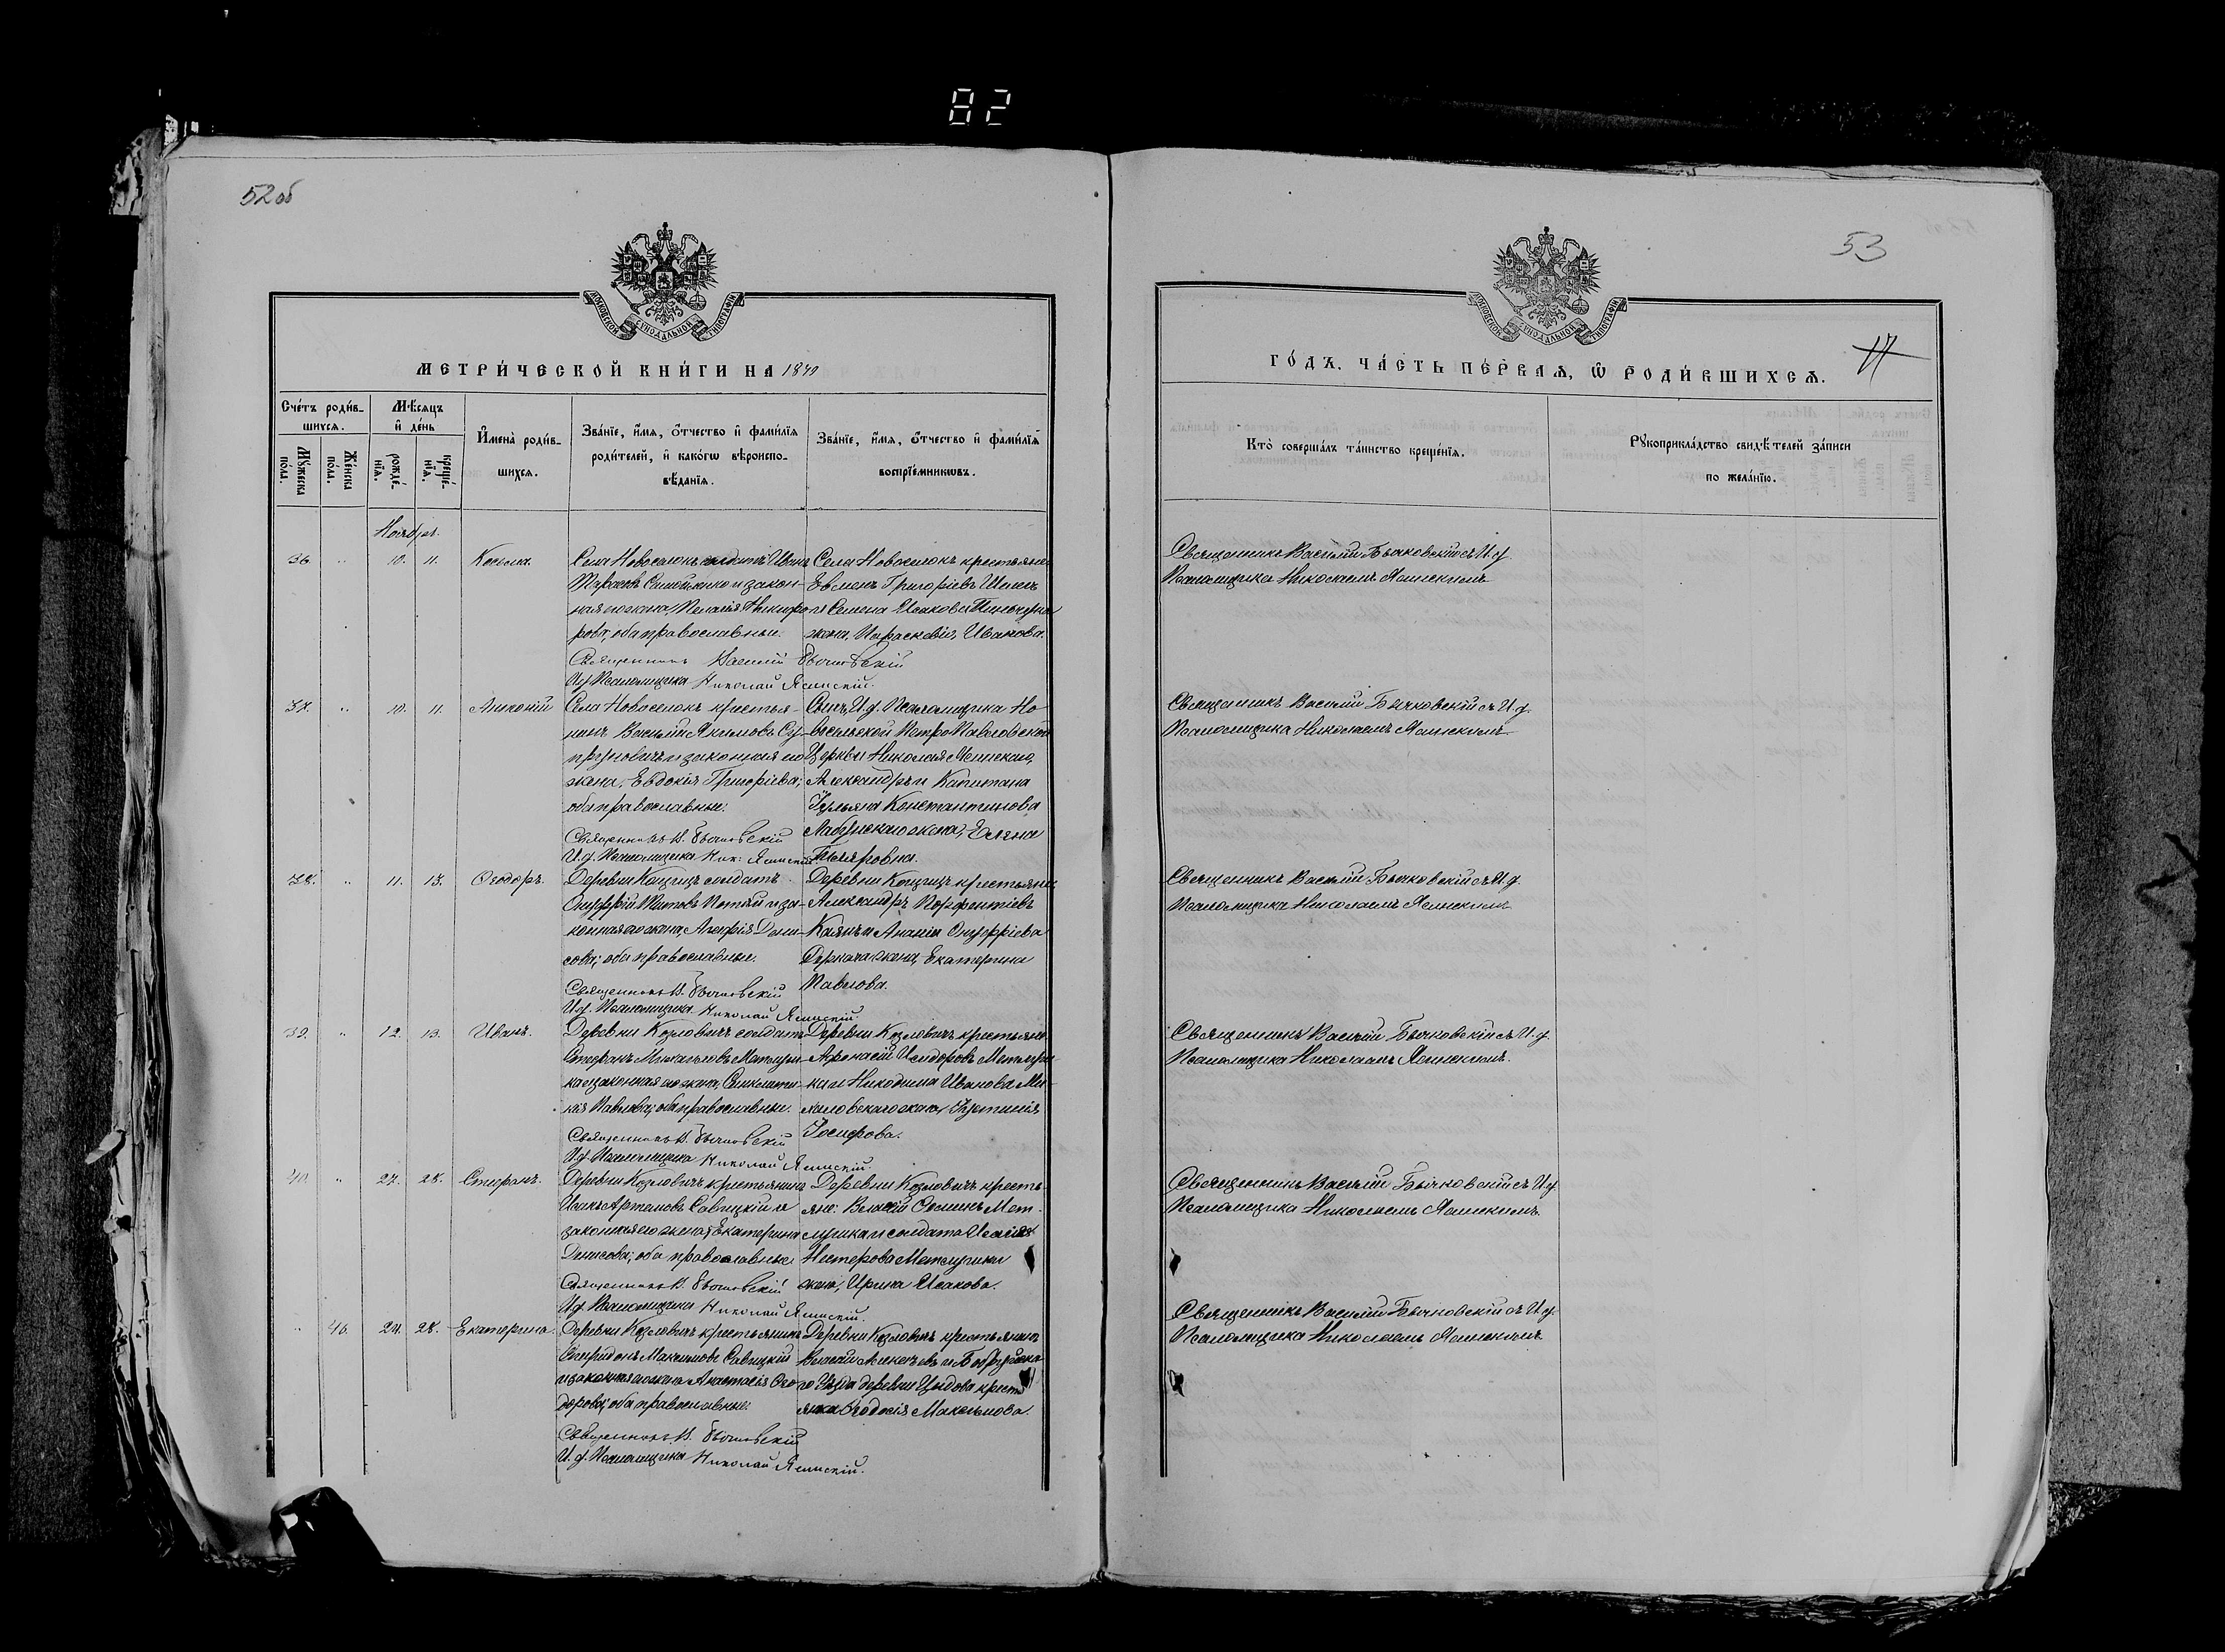 82
52об
МОСКОВСКОЙ СѴНОДАЛЬНОЙ ТИПОГРАФІИ
МЕТРИ́ЧЕСКОЙ КНИ́ГИ НА 1890
Сче́тъ роди́в-
шихсѧ.
Мѣ́сѧцъ
и҆ де́нь
Мꙋ́жеска
по́ла.
Же́нска
по́ла.
рожде́-
нїѧ.
креще́-
нїѧ.
И҆мена̀ роди́в-
шихсѧ.
Зва́нїе, и҆́мѧ, ѻ҆́тчество и҆ фами́лїѧ
роди́телей, и҆ како́гѡ вѣроиспо-
вѣ́данїѧ.
Зва́нїе, и҆́мѧ, ѻ҆́тчество и҆ фами́лїѧ
воспрїе́мникѡвъ.
Ноябрь.
36. " 10. 11. Козьма.
Села Новоселокъ солдатъ Иванъ
Тарасовъ и закон-
ная его жена, Пелагія Никифо-
рова; оба православные.
Священникъ Василій Бычковскій
И.д. Псаломщика Николай Ясинскій.
Села Новоселокъ крестьяне:
Евмен Григоріевъ
и Семена Исакова
жена, Параскевія Иванова.
37. " 10. 11. Антоній
Села Новоселокъ крестья-
нинъ Василій Якимовъ Су-
пруновичъ и законная его
жена, Евдокія Григоріева;
оба православные.
Священникъ В. Бычковскій
И.д. Псаломщика Ник: Ясинскій
Сынъ И.д. Псаломщика Но-
восельской Петро-Павловской
Церкви Николая Ясинскаго,
Александръ и Капитана
Ульяна Константинова
жена, Елена
38. " 11. 13. Ѳеодоръ.
Деревни Концичъ солдатъ
Онуфрій Титовъ и за-
конная его жена, Агафія Дени-
сова; оба православные.
Священникъ В. Бычковскій
И.д. Псаломщика Николай Ясинскій.
Деревни Концичъ крестьяне:
Александръ Порфентіевъ
и Ананія Онуфріева
Деркача жена, Екатерина
Павлова.
39. " 12. 13. Иванъ.
Деревни Козловичъ солдатъ
Стефанъ Михайловъ Метлуш-
ка и законная его жена, Синклити-
кія Павлова; оба православные.
Священникъ В. Бычковскій
И.д. Псаломщика Николай Ясинскій.
Деревни Козловичъ крестьяне:
Афанасій Исидоровъ Метлуш-
ка и Никодима Иванова Ми-
халовскаго жена Іустинія
Іосифова.
40. " 27. 28. Стефанъ.
Деревни Козловичъ крестьянинъ
Исаакъ Артамовъ Савицкій и
законная его жена, Екатерина
Денисова; оба православные
Священникъ В. Бычковскій
И.д. Псаломщика Николай Ясинскій.
Деревни Козловичъ кресть-
яне: Власій Ѳоминъ Мет-
лушка и солдата Исаія
Нестерова Метлушки
жена, Ирина Исакова.
" 46. 24. 28. Екатерина.
Деревни Козловичъ крестьянинъ
Спиридонъ Максимовъ Савицкій
и законная его жена Анастасія Ѳео-
дорова; оба православные.
Священникъ В. Бычковскій
И.д. Псаломщика Николай Ясинскій.
Деревни Козловичъ крестьянинъ
Василій Алексѣевъ и Бобруйска-
го Уѣзда деревни кресть-
янка Ѳеодосія Максимова.
53
МОСКОВСКОЙ СѴНОДАЛЬНОЙ ТИПОГРАФІИ
ГО́ДЪ. ЧА́СТЬ ПЕ́РВАѦ, Ѡ҆ РОДИ́ВШИХСѦ.
17
Кто̀ соверша́лъ та́инство креще́нїѧ.
Рꙋкоприкла́дство свидѣ́телей за́писи
по жела́нїю.
Священникъ Василій Бычковскій съ И.д.
Псаломщика Николаемъ Ясинскимъ
Священникъ Василій Бычковскій съ И.д.
Псаломщика Николаемъ Ясинскимъ
Священникъ Василій Бычковскій съ И.д.
Псаломщика Николаемъ Ясинскимъ
Священникъ Василій Бычковскій съ И.д.
Псаломщика Николаемъ Ясинскимъ.
Священникъ Василій Бычковскій съ И.д.
Псаломщика Николаемъ Ясинскимъ.
Священникъ Василій Бычковскій съ И.д.
Псаломщика Николаемъ Ясинскимъ